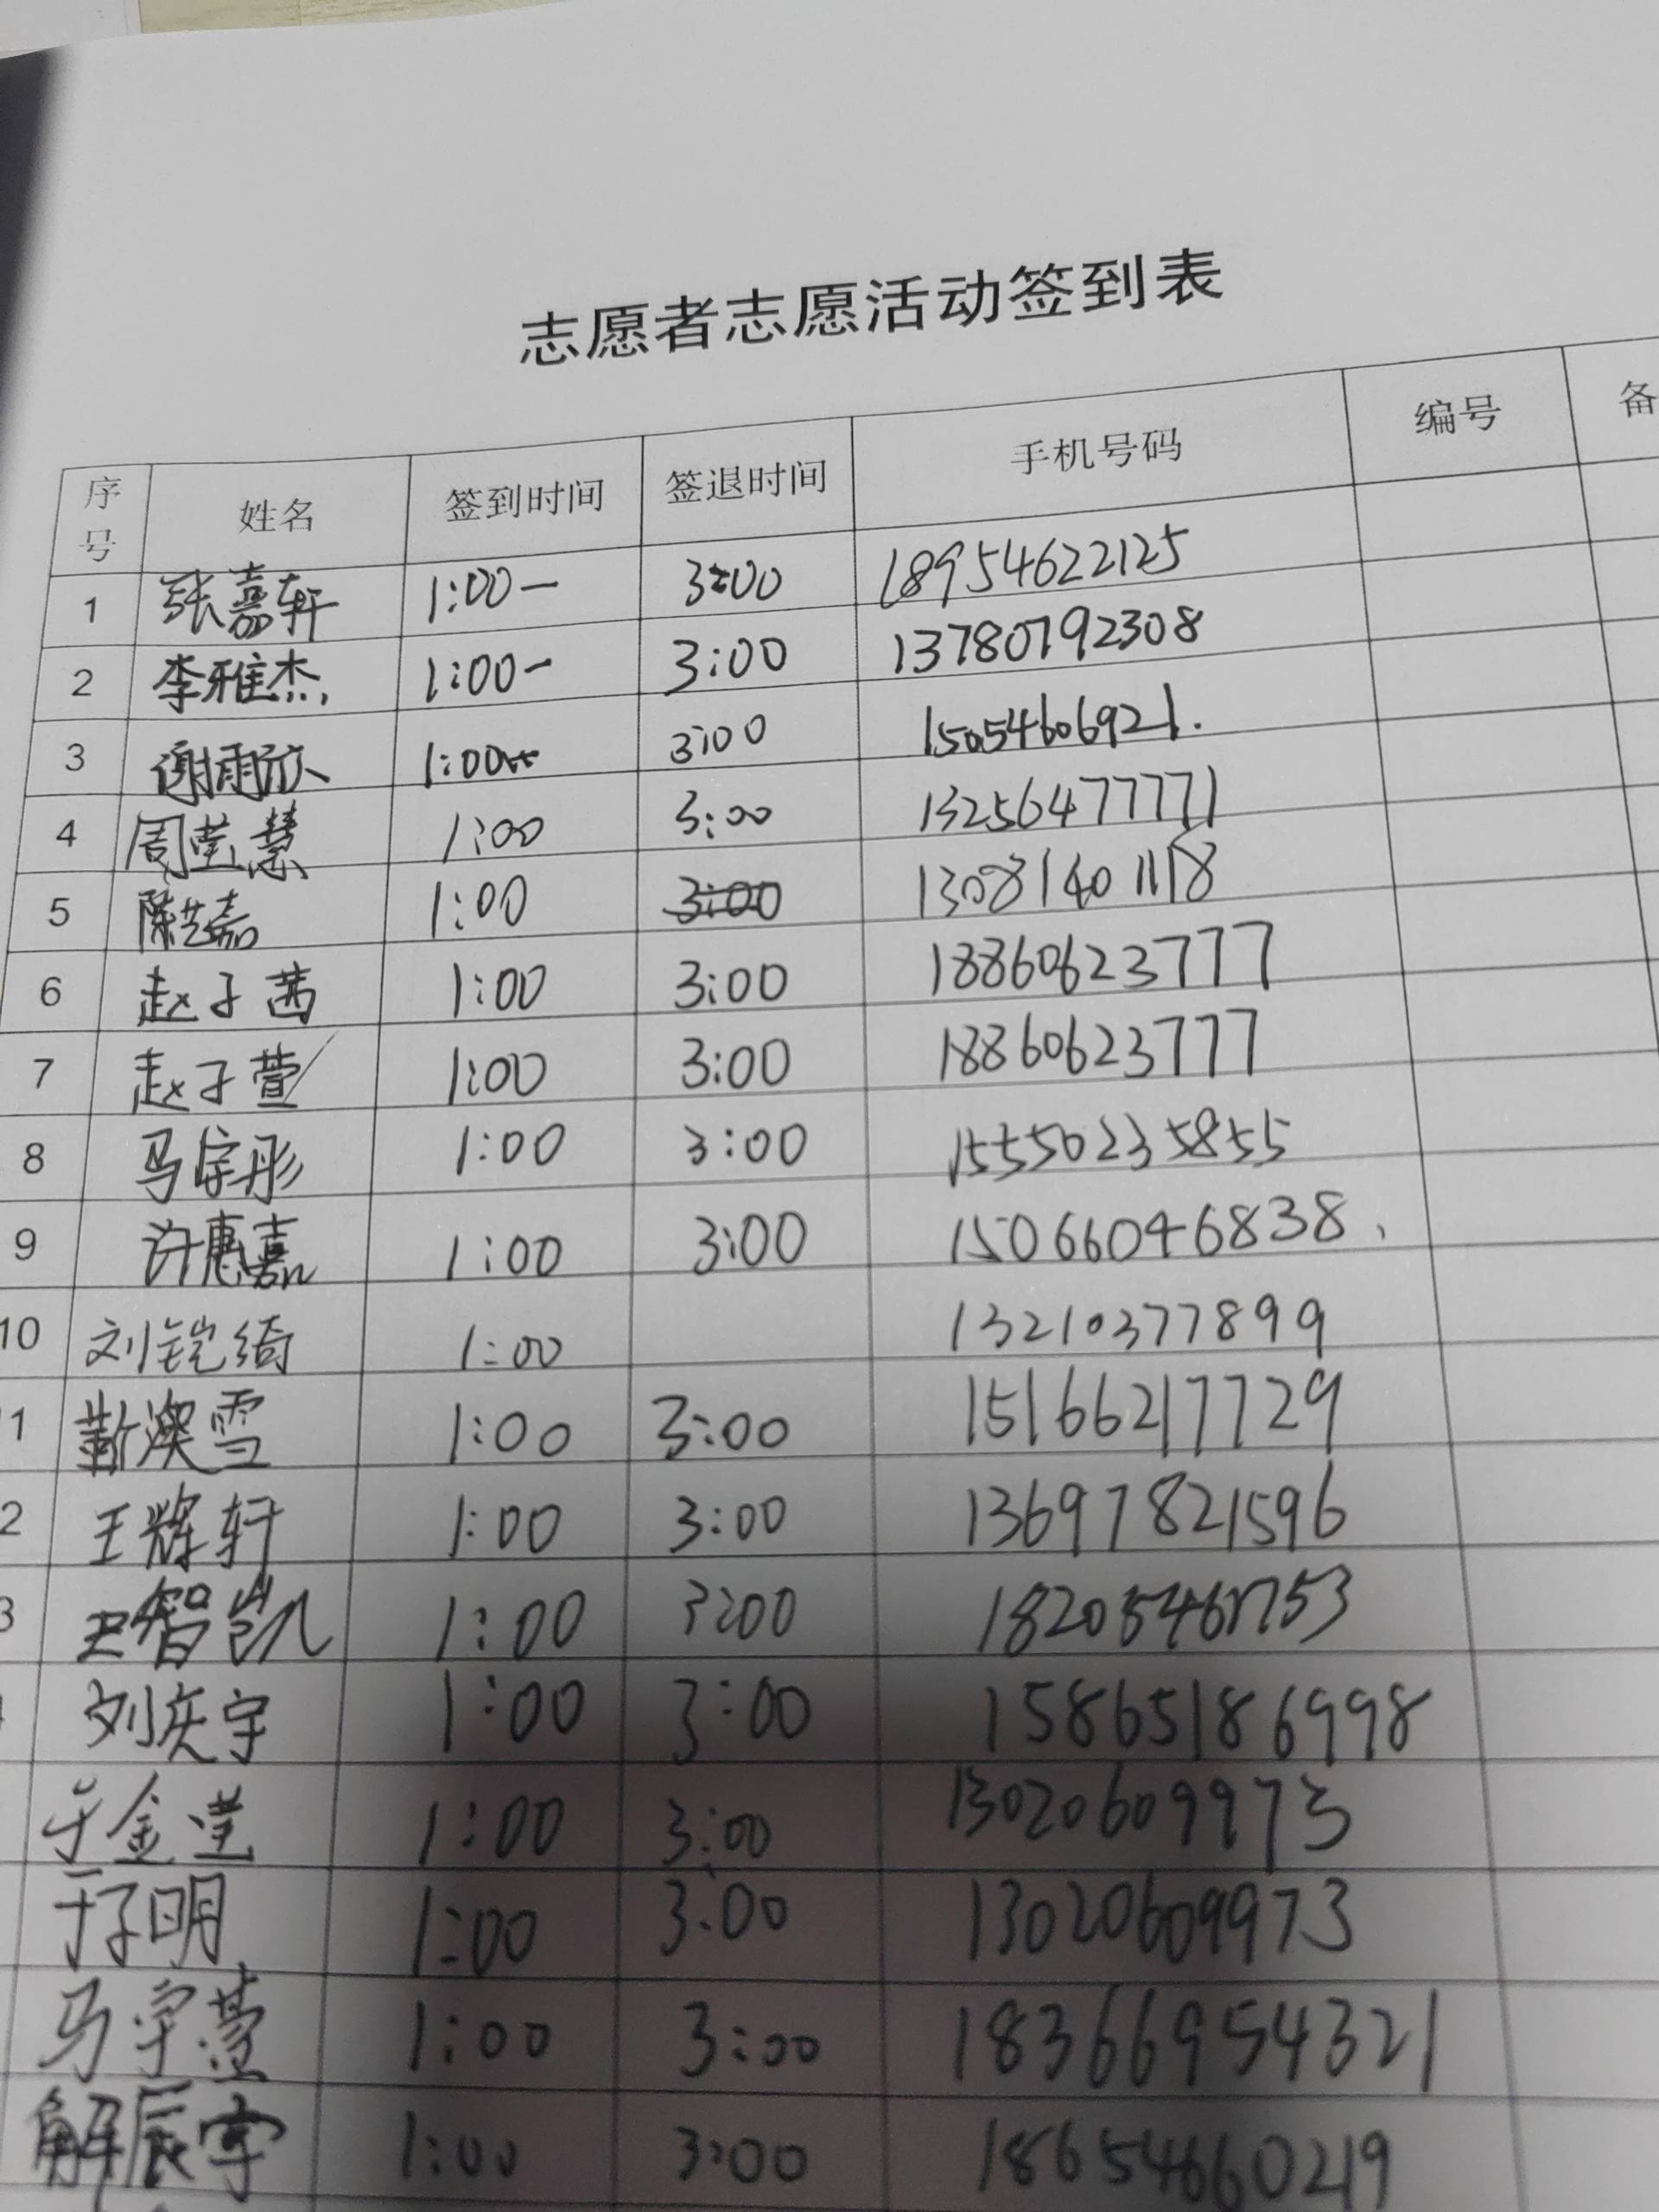 志愿者志愿活动签到表
序号 姓名 签到时间 签退时间 手机号码 编号 备
1 张嘉轩 1:00一 3:00 18954622125
2 李雅杰 1:00- 3:00 13780792308
3 谢雨欣 1:00 3:00 15054606921.
4 周莹慧 1:00 3:00 13256477771
5 陈艺嘉 1:00 3:00 13081401118
6 赵子茜 1:00 3:00 18860623777
7 赵子萱 1:00 3:00 18860623777
8 马字彤 1:00 3:00 15550235855
9 许惠嘉 1:00 3:00 15066046838、
10 刘铠绮 1:00 13210377899
1 靳澳雪 1:00 3:00 15166217729
2 王辉轩 1:00 3:00 13697821596
3 王智凯 1:00 3:00
刘奕宇 1:00 3:00 15865186998
于金莹 1:00 3:00 13020609973
于子明 1:00 3:00 13020609973
马宇 1:00 3:00 18366954321
解辰宇 1:00 3:00 18654660219